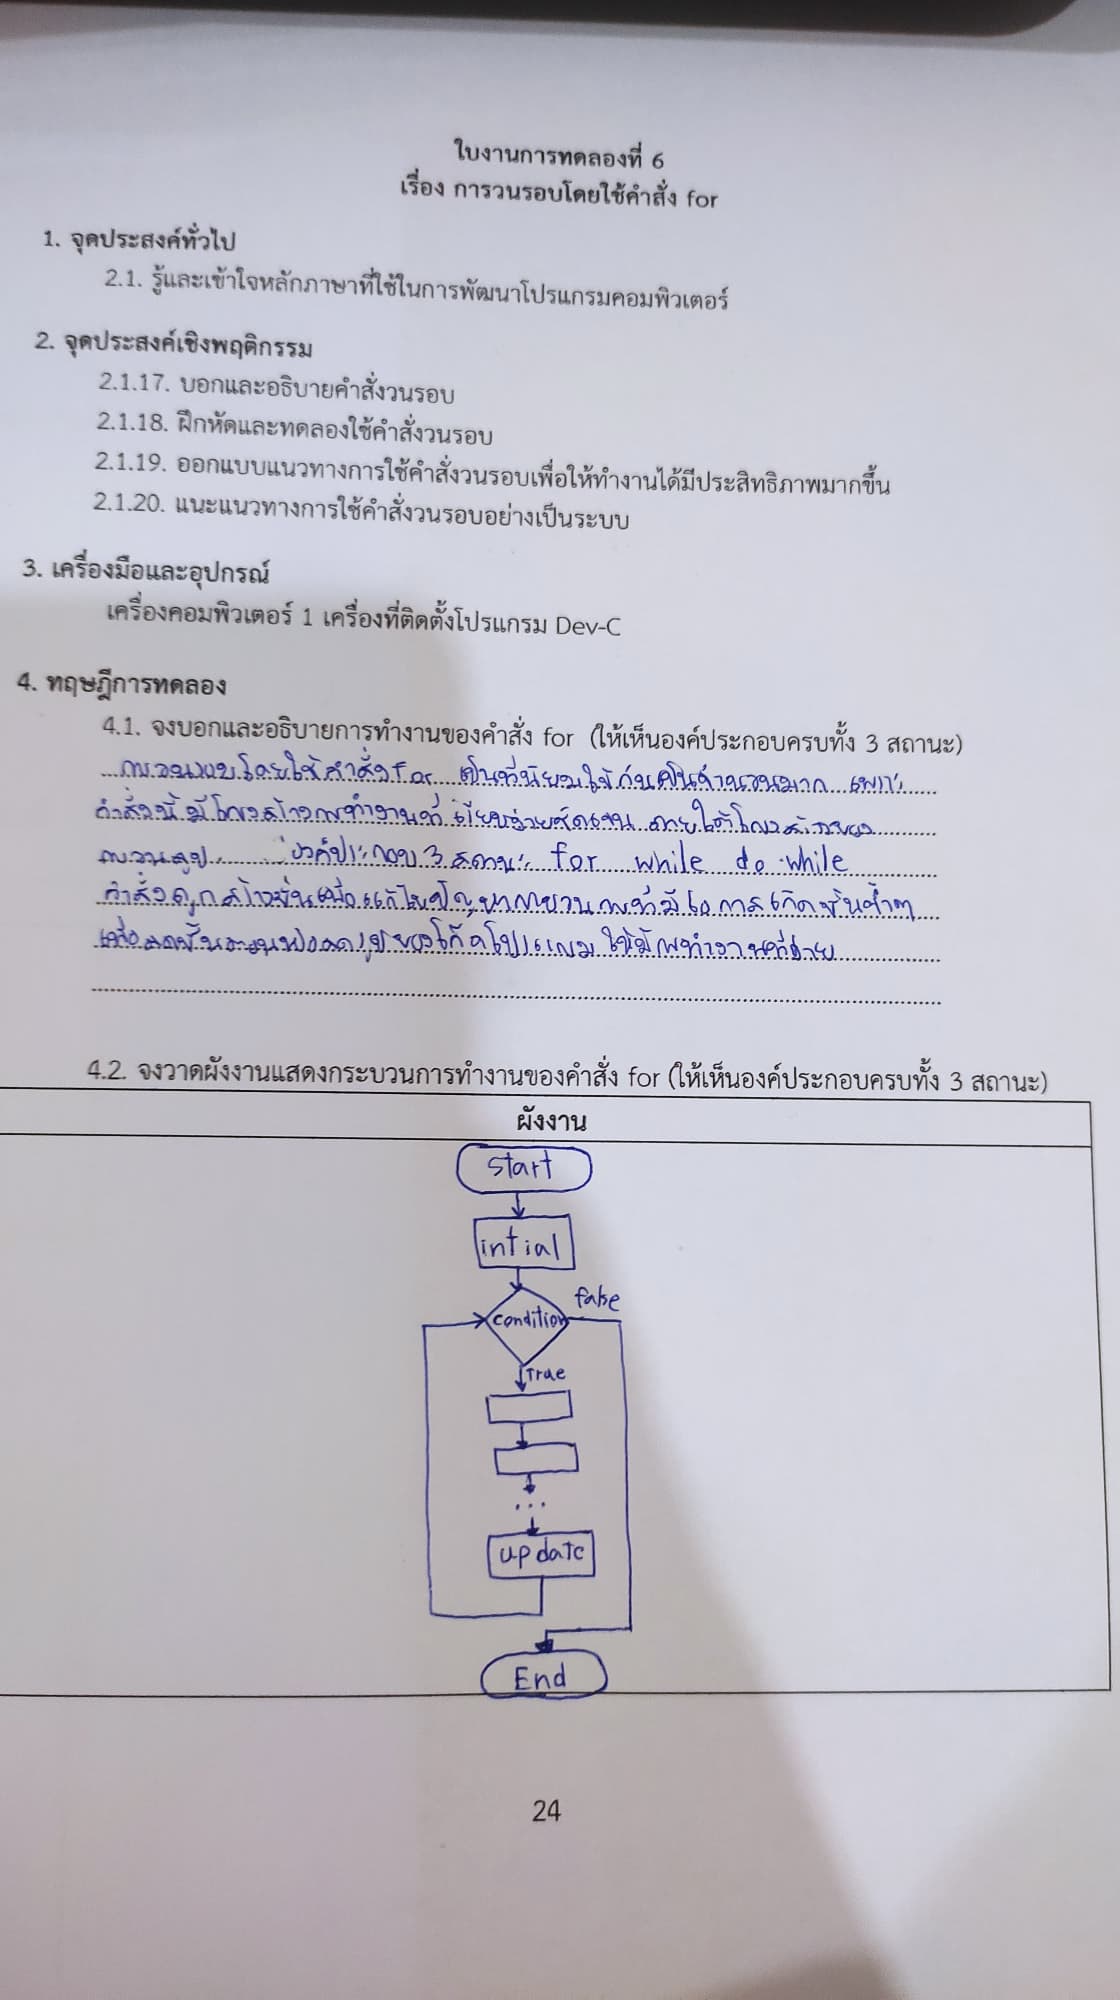 ใบงานการทดลองที่ 6
เรื่อง การวนรอบโดยใช้คำสั่ง for
1. จุดประสงค์ทั่วไป
2.1. รู้และเข้าใจหลักภาษาที่ใช้ในการพัฒนาโปรแกรมคอมพิวเตอร์
2. จุดประสงค์เชิงพฤติกรรม
2.1.17. บอกและอธิบายคำสั่งวนรอบ
2.1.18. ฝึกหัดและทดลองใช้คำสั่งวนรอบ
2.1.19. ออกแบบแนวทางการใช้คำสั่งวนรอบเพื่อให้ทำงานได้มีประสิทธิภาพมากขึ้น
2.1.20. แนะแนวทางการใช้คำสั่งวนรอบอย่างเป็นระบบ
3. เครื่องมือและอุปกรณ์
เครื่องคอมพิวเตอร์ 1 เครื่องที่ติดตั้งโปรแกรม Dev-C
4. ทฤษฎีการทดลอง
4.1. จงบอกและอธิบายการทำงานของคำสั่ง for (ให้เห็นองค์ประกอบครบทั้ง 3 สถานะ)
การวนรอบโดยใช้คำสั่ง for เป็นที่นิยมใช้กันเป็นจำนวนมาก เพราะ
คำสั่งนี้มีโครงสร้างการทำงานที่เรียบง่ายชัดเจน ภายใต้โครงสร้างของ
การวนลูป องค์ประกอบ 3 สถานะ for while do while
คำสั่งถูกสร้างขึ้นเพื่อแก้ไขปัญหากระบวนการที่มีโอกาสเกิดขึ้นซ้ำๆ
เพื่อลดขั้นตอน ให้มีการทำงานที่ง่าย
4.2. จงวาดผังงานแสดงกระบวนการทำงานของคำสั่ง for (ให้เห็นองค์ประกอบครบทั้ง 3 สถานะ)
ผังงาน
Start
intial
condition
false
True
...
update
End
24